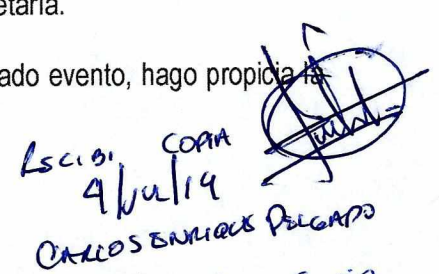 etaria.
ado evento, hago propicia la
RECIBI COPIA
9/JUL/14
CARLOS ENRIQUE DELGADO